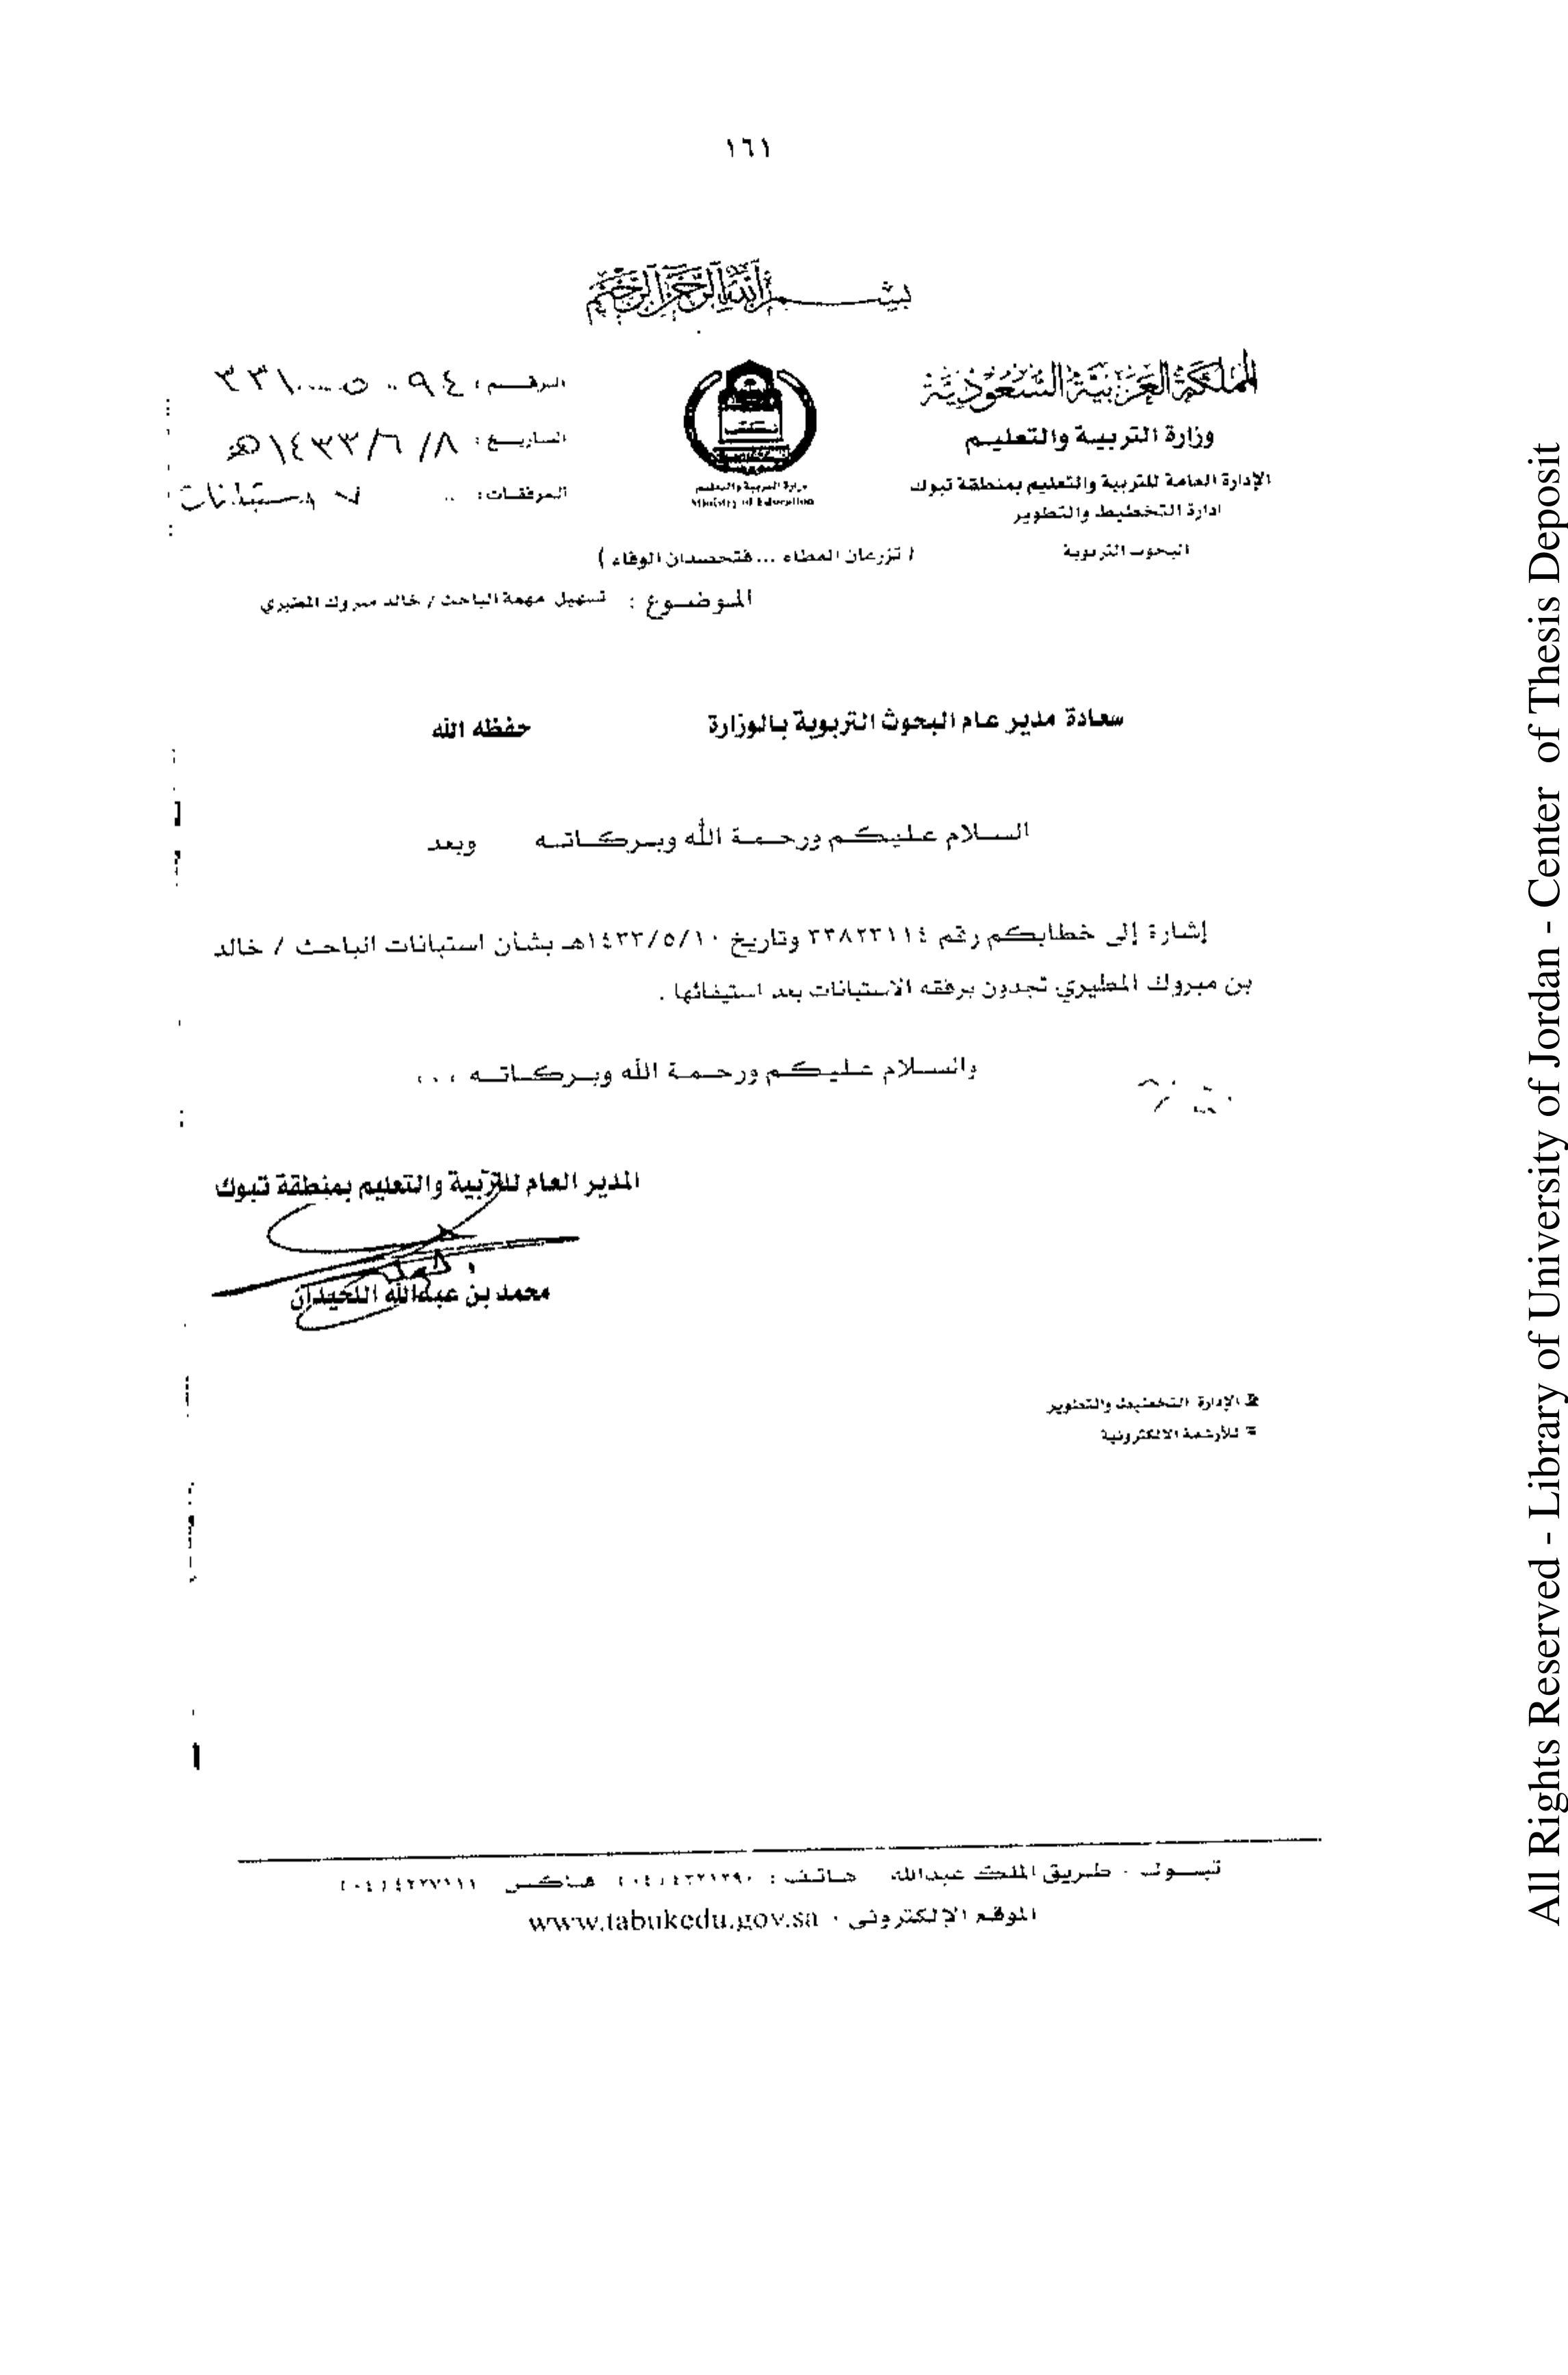 ١٦١
بسم الله الرحمن الرحيم
المملكة العربية السعودية
وزارة التربية والتعليم
الإدارة العامة للتربية والتعليم بمنطقة تبوك
ادارة التخطيط والتطوير
البحوث التربوية
وزارة التربية والتعليم
Ministry of Education
الرقم :
التاريخ : ٨/ ٦/ ١٤٣٣هـ
المرفقات : استبانات
( تزرعان العطاء ... فتحصدان الوفاء )
الموضوع : تسهيل مهمة الباحث / خالد مبروك المطيري
سعادة مدير عام البحوث التربوية بالوزارة حفظه الله
السلام عليكم ورحمة الله وبركاته وبعد
إشارة إلى خطابكم رقم ٣٣٨٢٣١١٤ وتاريخ ١٤٣٣/٥/١٠هـ بشأن استبانات الباحث / خالد
بن مبروك المطيري تجدون برفقه الاستبانات بعد استيفائها .
والسلام عليكم ورحمة الله وبركاته ،،،
المدير العام للتربية والتعليم بمنطقة تبوك
محمد بن عبدالله اللحيدان
الإدارة التخطيط والتطوير
للأرشفة الالكترونية
تبوك - طريق الملك عبدالله هاتف : فاكس
الموقع الإلكتروني : www.tabukedu.gov.sa
All Rights Reserved - Library of University of Jordan - Center of Thesis Deposit